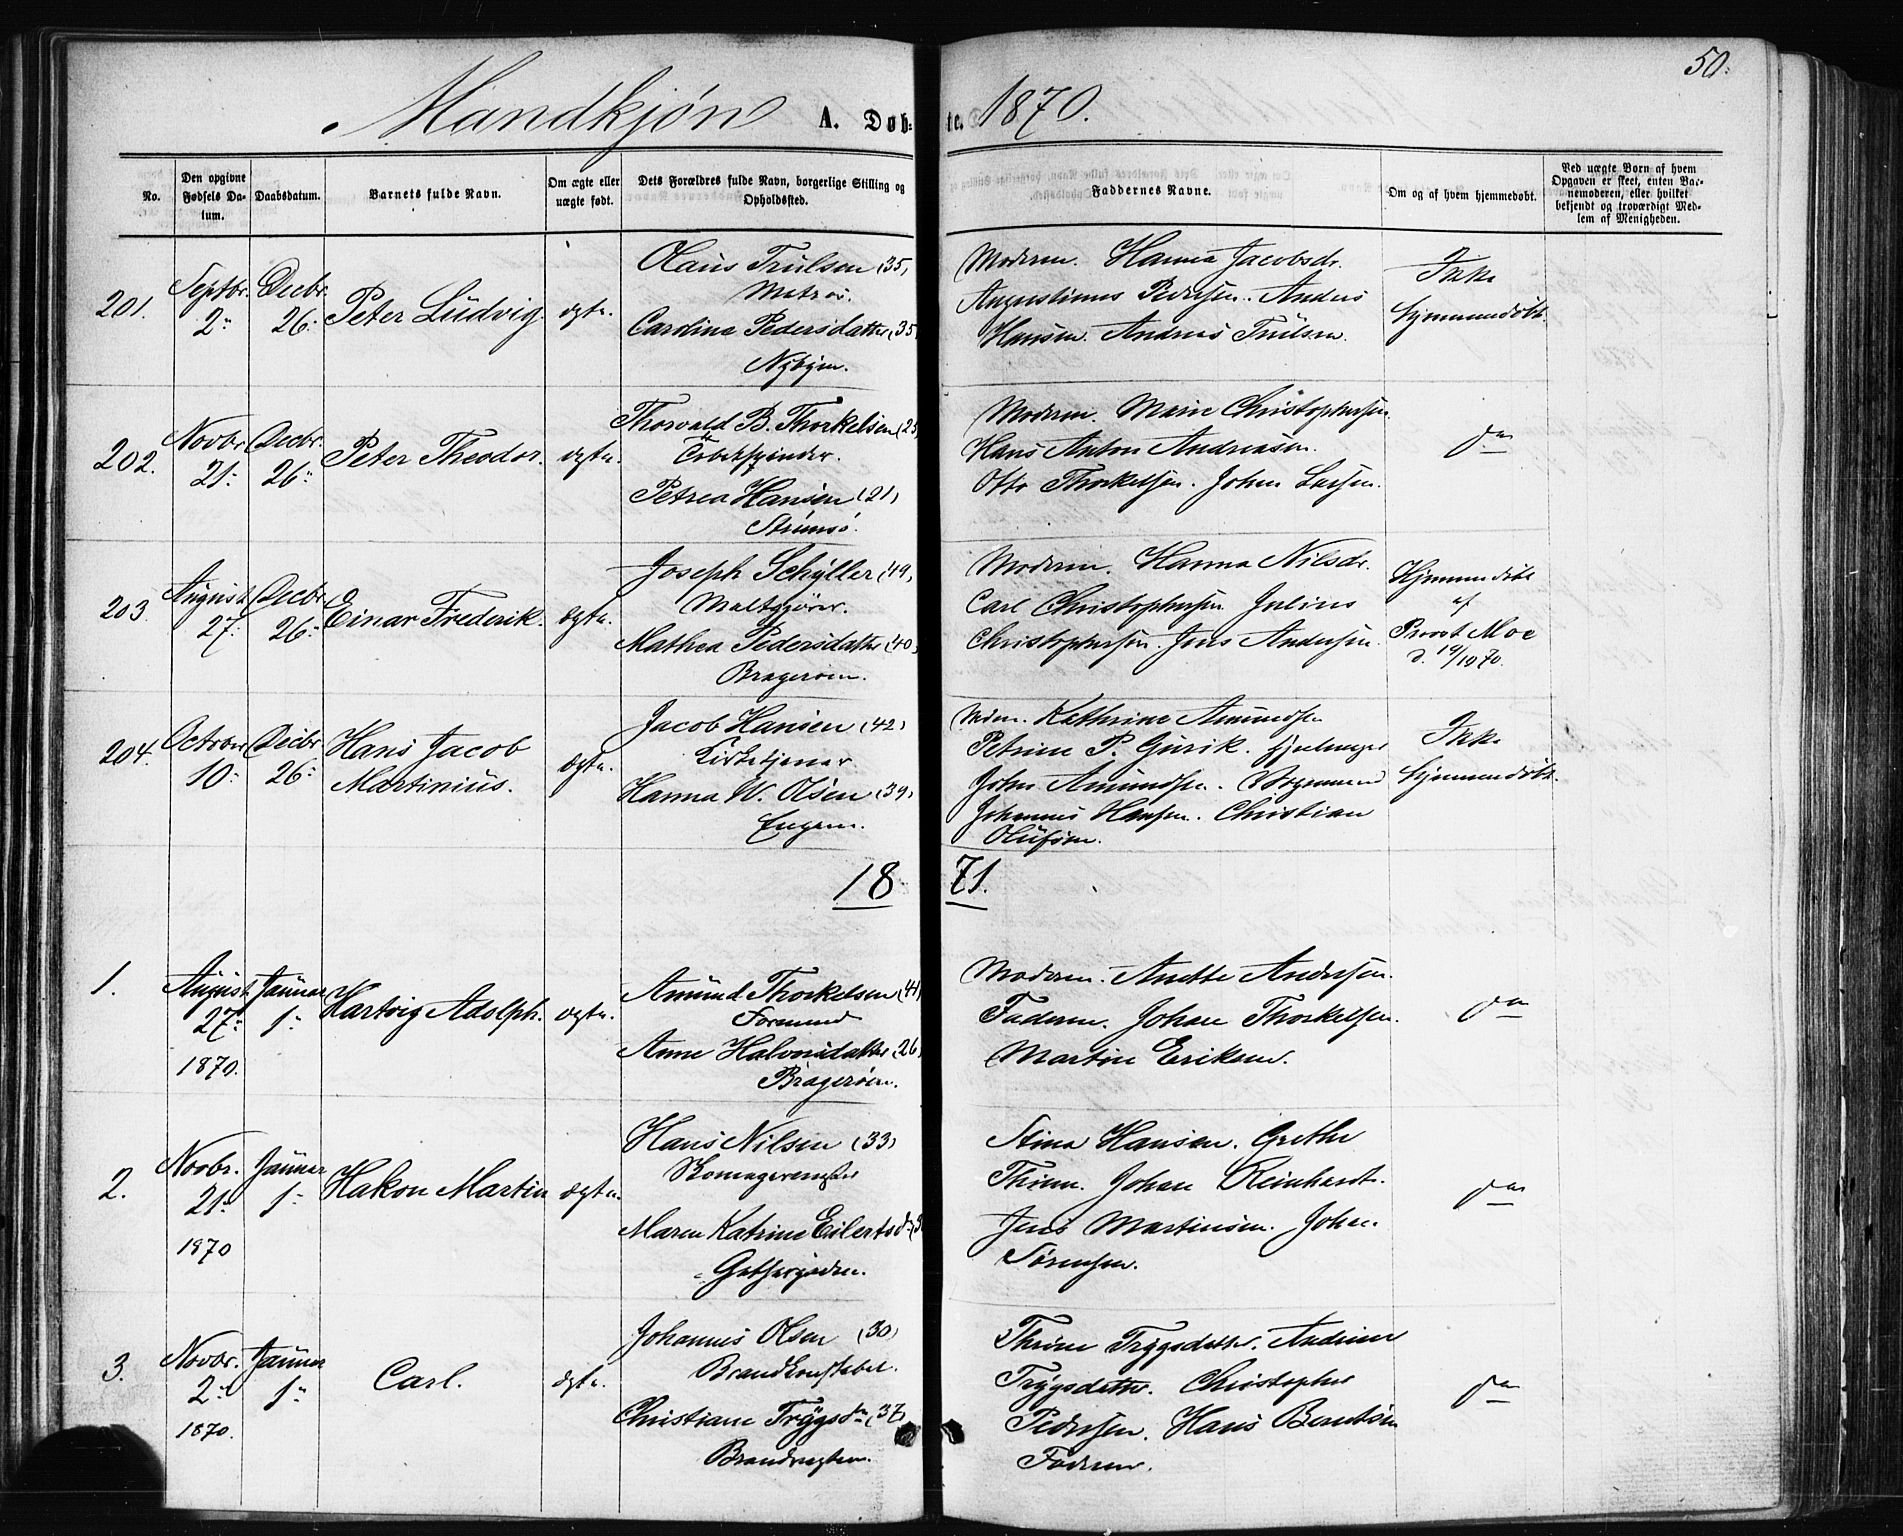 50.
Mandkjøn A. Døb- te. 1870.
No.
Den opgivne Fødsels Da-
tum.
Daabsdatum.
Barnets fulde Navn.
Om ægte eller
uægte født.
Dets Forældres fulde Navn, borgerlige Stilling og
Opholdssted.
Faddernes Navne.
Om og af hvem hjemmedøbt.
Ved uægte Børn af hvem
Opgaven er skeet, enten Bar-
nemoderen, eller hvilket
bekjendt og troværdigt Med-
lem af Menigheden.
201.
Septbr.
2
Decbr.
26
Peter Ludvig.
ægte.
Olaus Trulsen (35)
Matros.
Carolina Pedersdatter (35
Nybyen.
Moderen. Hanna Jacobsdr.
Augustinus Pedersen. Anders
Hansen. Andreas Trulsen.
Ikke
hjemmedøbt.
202.
Novbr
21
Decbr.
26
Peter Theodor.
ægte.
Thorvald B. Thorkelsen (25
Tobakspinder.
Petrea Hansen (21)
Strømsø.
Moderen. Marie Christophersen.
Hans Anton Andreasen.
Otto Thorkelsen. Johan Larsen.
do
203.
August
27
Decbr
26
Einar Frederik.
ægte.
Joseph Schyller (49)
Maltgjører.
Mathea Pedersdatter (40)
Bragerøen.
Moderen. Hanna Nilsdr.
Carl Christophersen Julius
Christophersen. Jens Andersen.
Hjemmedøbt
af
Provst Moe
d. 19/10 70.
204.
October
10
Decbr
26
Hans Jacob
Martinius.
ægte.
Jacob Hansen (42)
Kirketjener
Hanna W. Olsen (39)
Engene.
Mdrn. Kathrine Amundsen
Petrine P. Gursik.
John Amundsen.
Johannes Hansen. Christian
Olufsen.
Ikke
hjemmedøbt.
18 71.
1.
August
27
1870.
Januar
1
Hartvig Adolph.
ægte.
Amund Thorkelsen (41)
Formand
Anne Halvorsdatter (26)
Bragerøen.
Moderen. Anette Andersen.
Faderen. Johan Thorkelsen.
Martin Eriksen.
do
2.
Novbr.
21
1870
Januar
1
Hakon Martin
ægte.
Hans Nilsen (33)
Skomagersvend
Maren Katrine Eilertsd. (3
Gethergaden.
Stina Hansen. Grethe
Thiem. Johan Reinhardt.
Jens Martinsen. Johan
Sørensen.
do
3.
Novbr.
2
1870.
Januar
1
Carl.
ægte.
Johannes Olsen (30)
Brandkonstabel.
Christiane Trygsdr (37)
Brandvagten.
Thrine Trygsdatter. Andrine
Trygsdatter. Christopher
Pedersen. Hans Berntsen
Faderen.
do